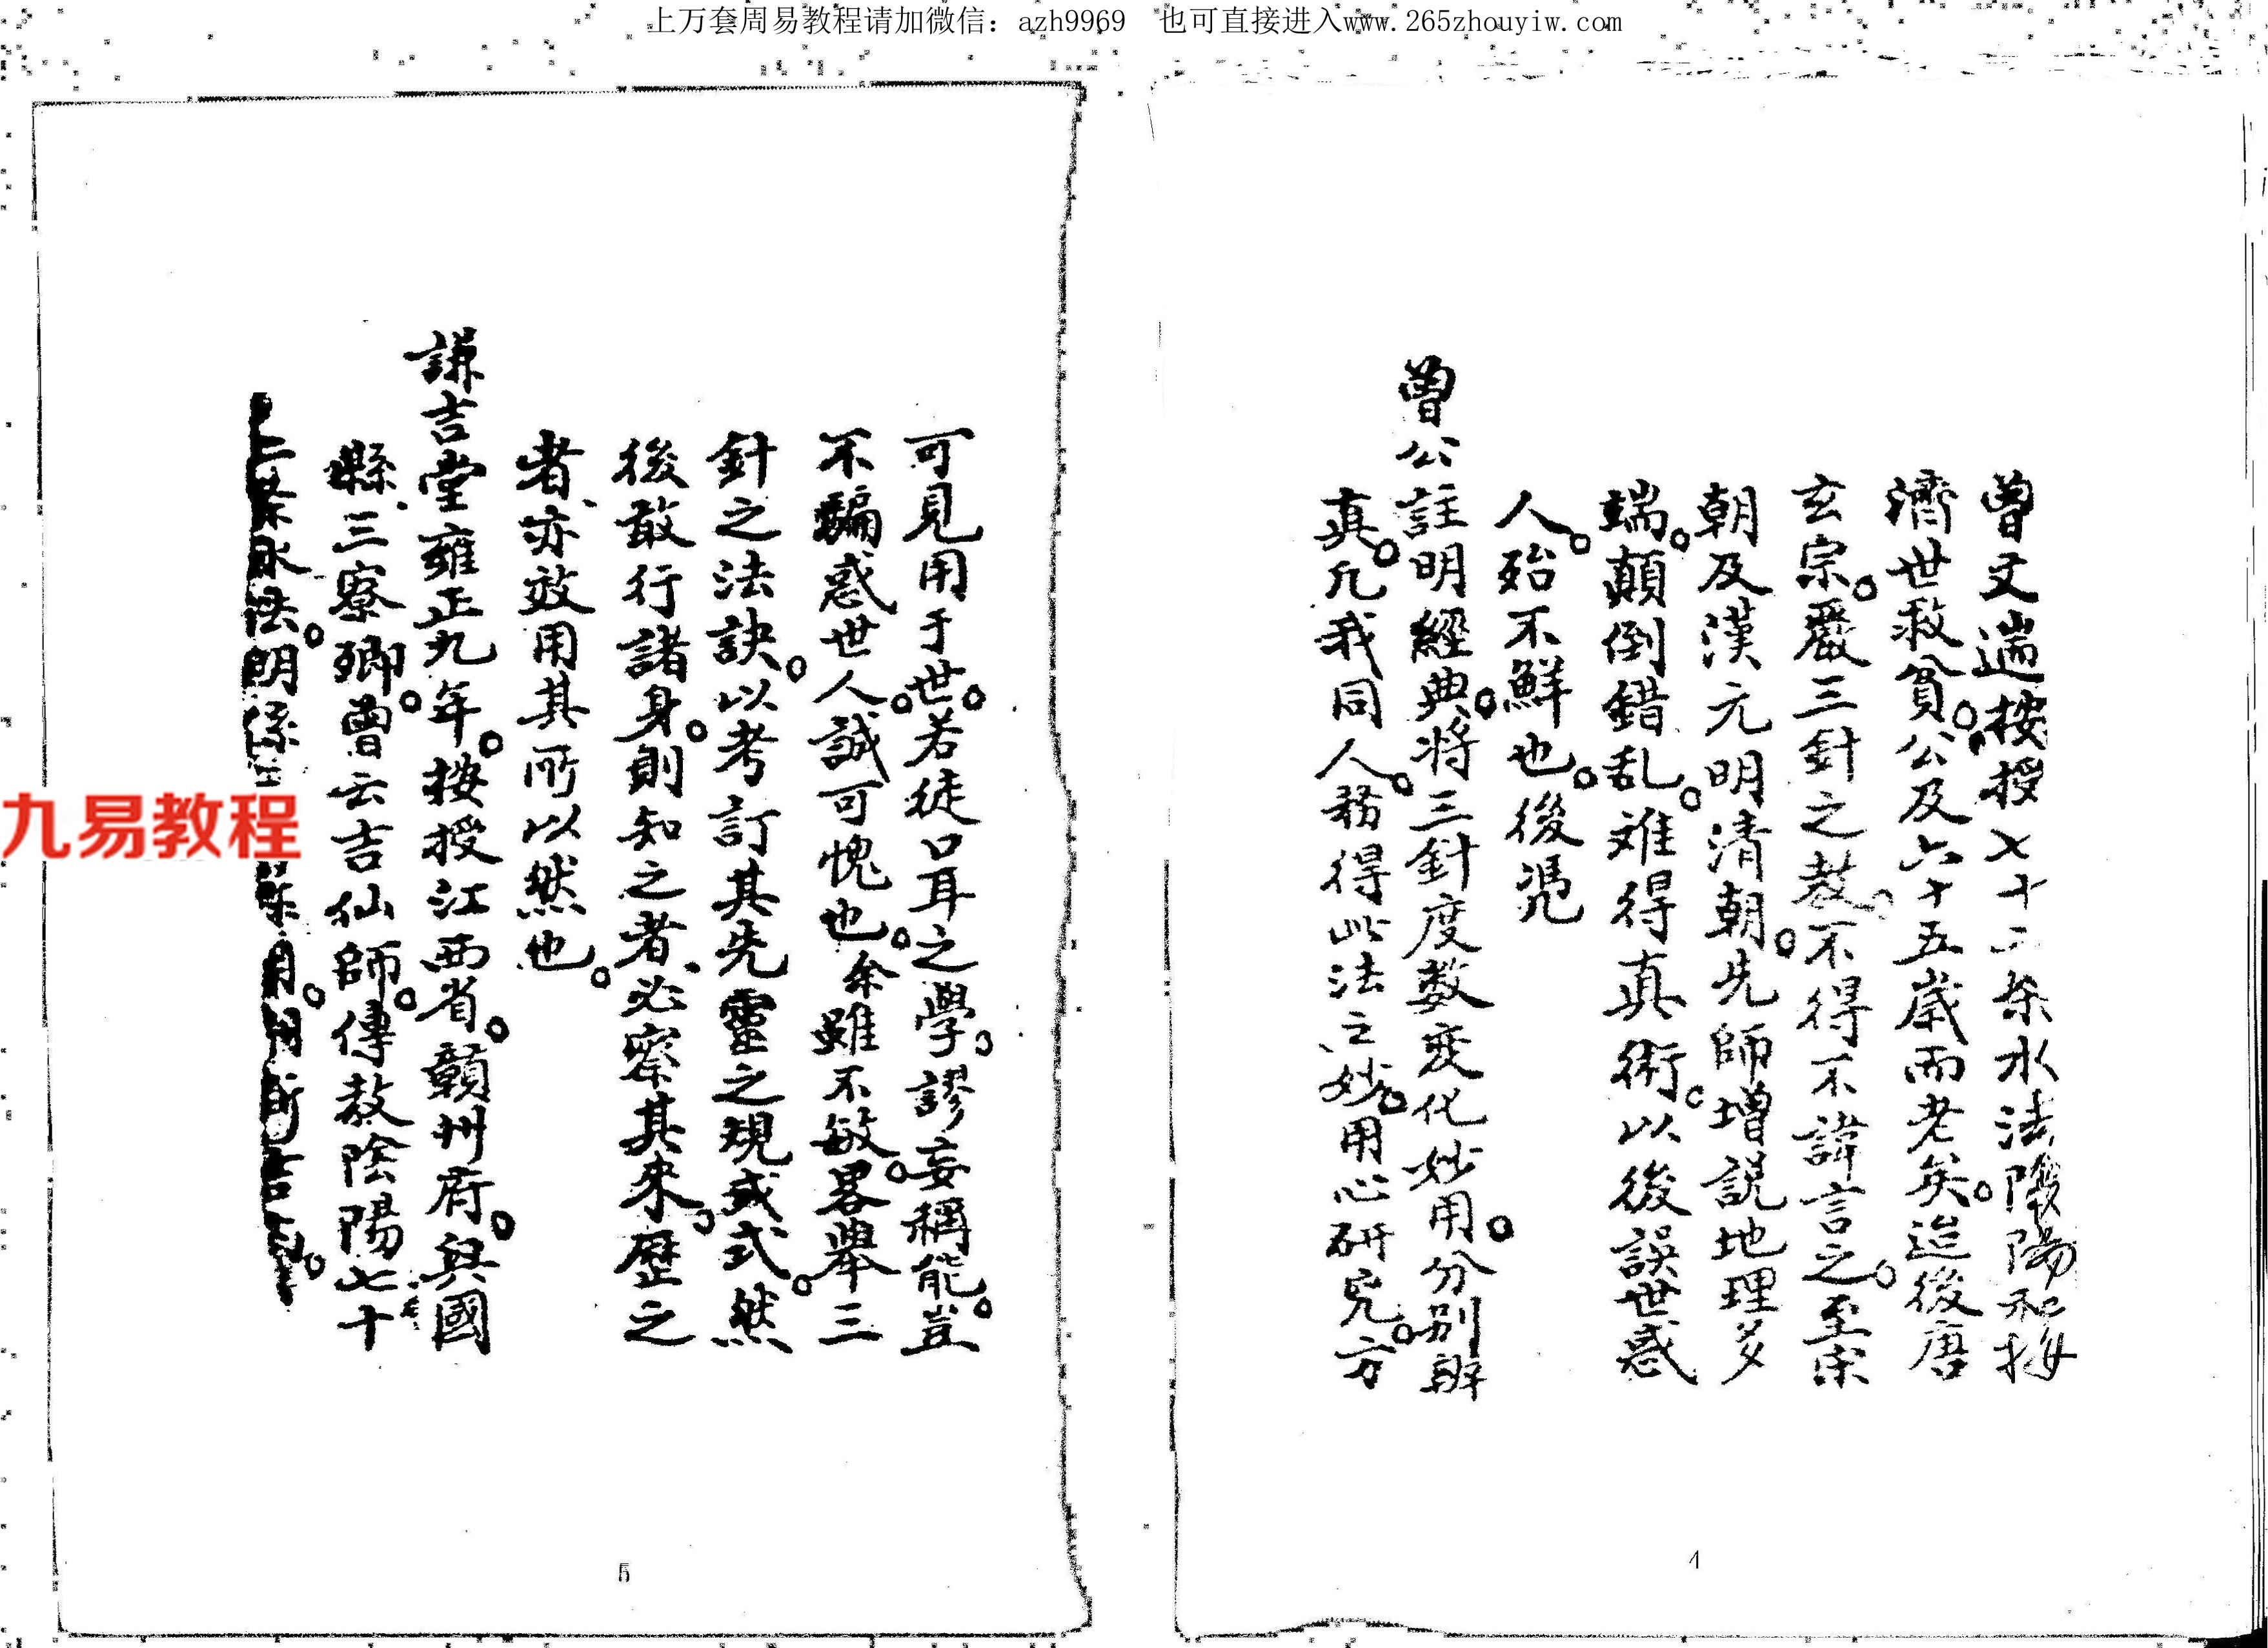 上万套周易教程请加微信：azh9969 也可直接进入www.265zhouyiw.com
曾文遄按授七十二条水法陰陽和按
濟世救貧。公及六十五歲而老矣。迨後唐
玄宗。嚴三針之教。不得不諱言之。至宋
朝及漢元明清朝。先師增説地理多
端。顛倒錯乱。难得真術。以後誤世惑
人。殆不鮮也。後凴
曾公註明經典。将三針度数变化妙用。分别辨
真。凡我同人。務得此法之妙。用心研究。方
4
可見用于世。若徒口耳之學。謬妄稱能。豈
不騙惑世人。誠可愧也。余雖不敏。畧舉三
針之法訣。以考訂其先靈之規或式。然
後敢行諸身。則知之者、必察其来歷之
者、亦效用其所以然也。
謙吉堂雍正九年。按授江西省。贛州府。興國
縣、三寮鄉。曾云吉仙師。傳教陰陽七十
二条水法。明係
5
九易教程